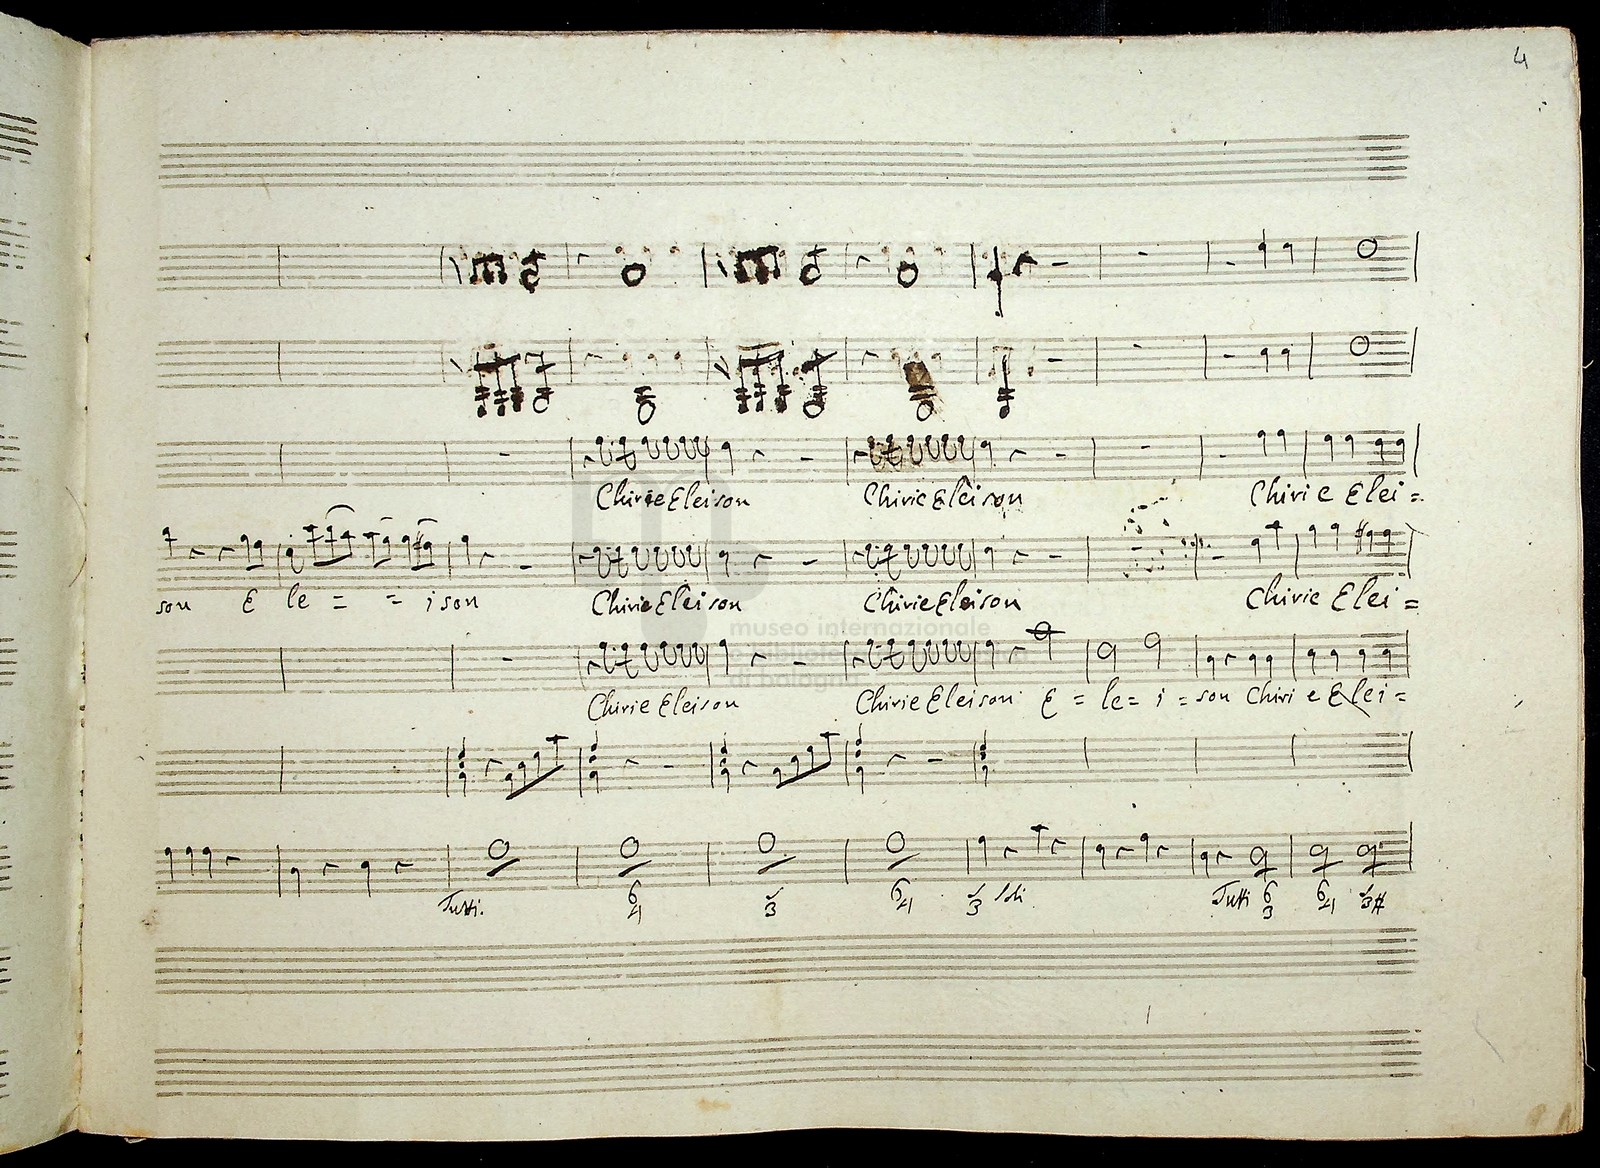 4
Chirie Eleison Chirie Eleison Chirie Elei=
son E le = = ison Chirie Eleison Chirie Eleison Chirie Elei=
museo internazionale
di bologna
Chirie Eleison Chirie Eleison E = le= i = son Chirie Elei=
Tutti. 6 4 5 3 6 4 5 3 Soli Tutti 6 3 6 4 5 3#